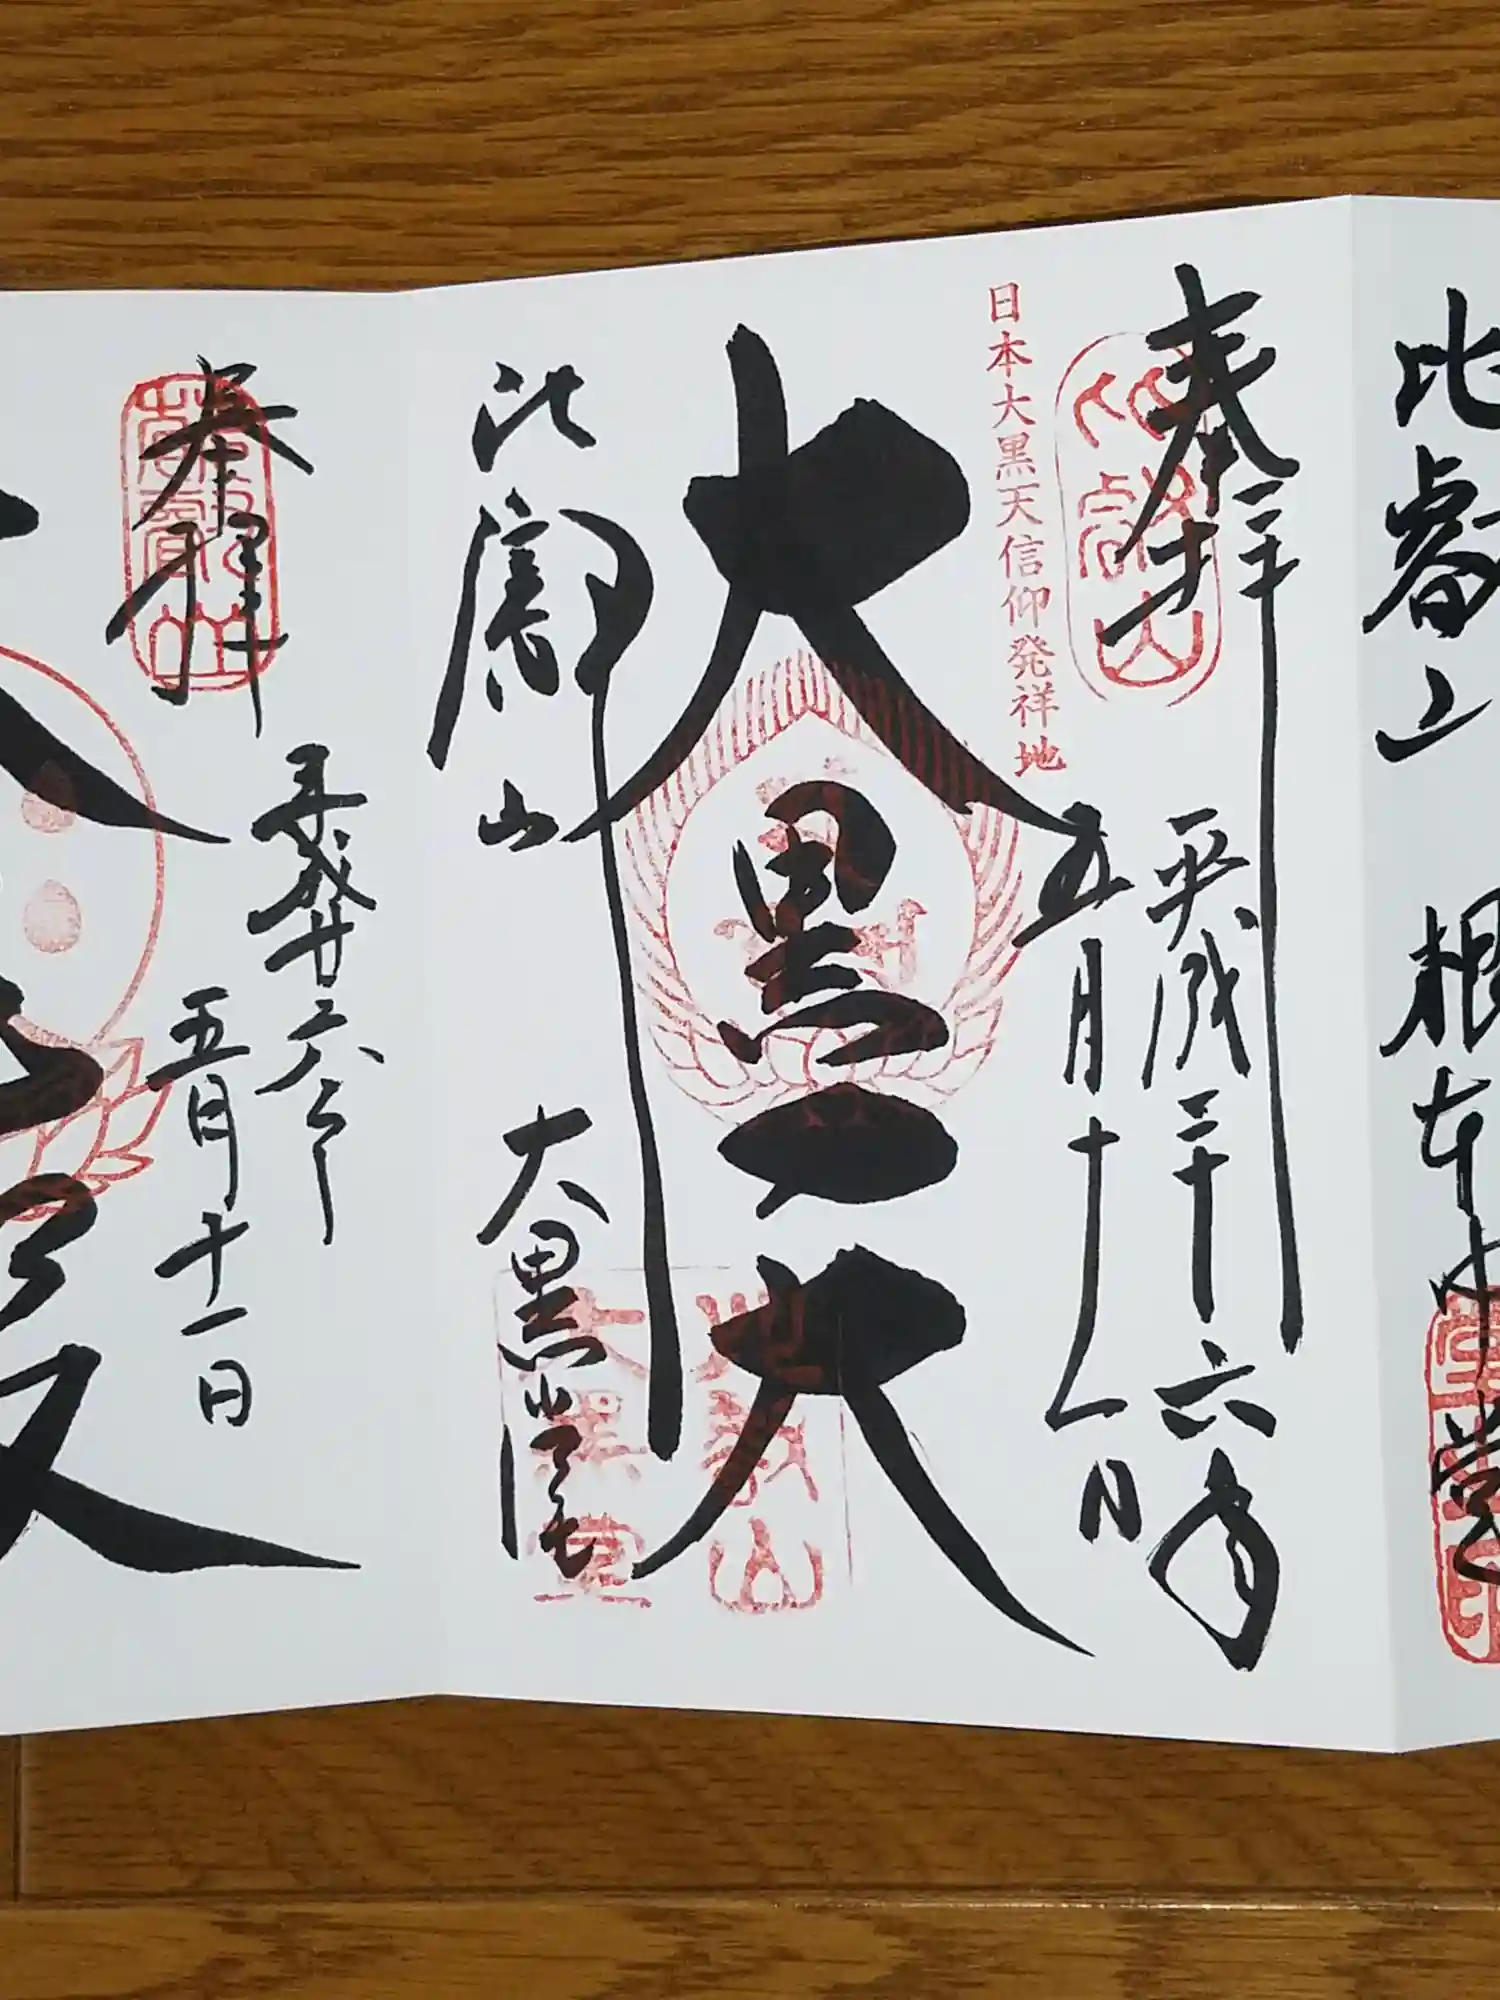 比叡山
根本中堂
奉拝
平成二十六年
五月十一日
日本大黒天信仰発祥地
大黒天
比叡山
大黒堂
比叡山
大黒堂
奉拝
平成廿六年
五月十一日